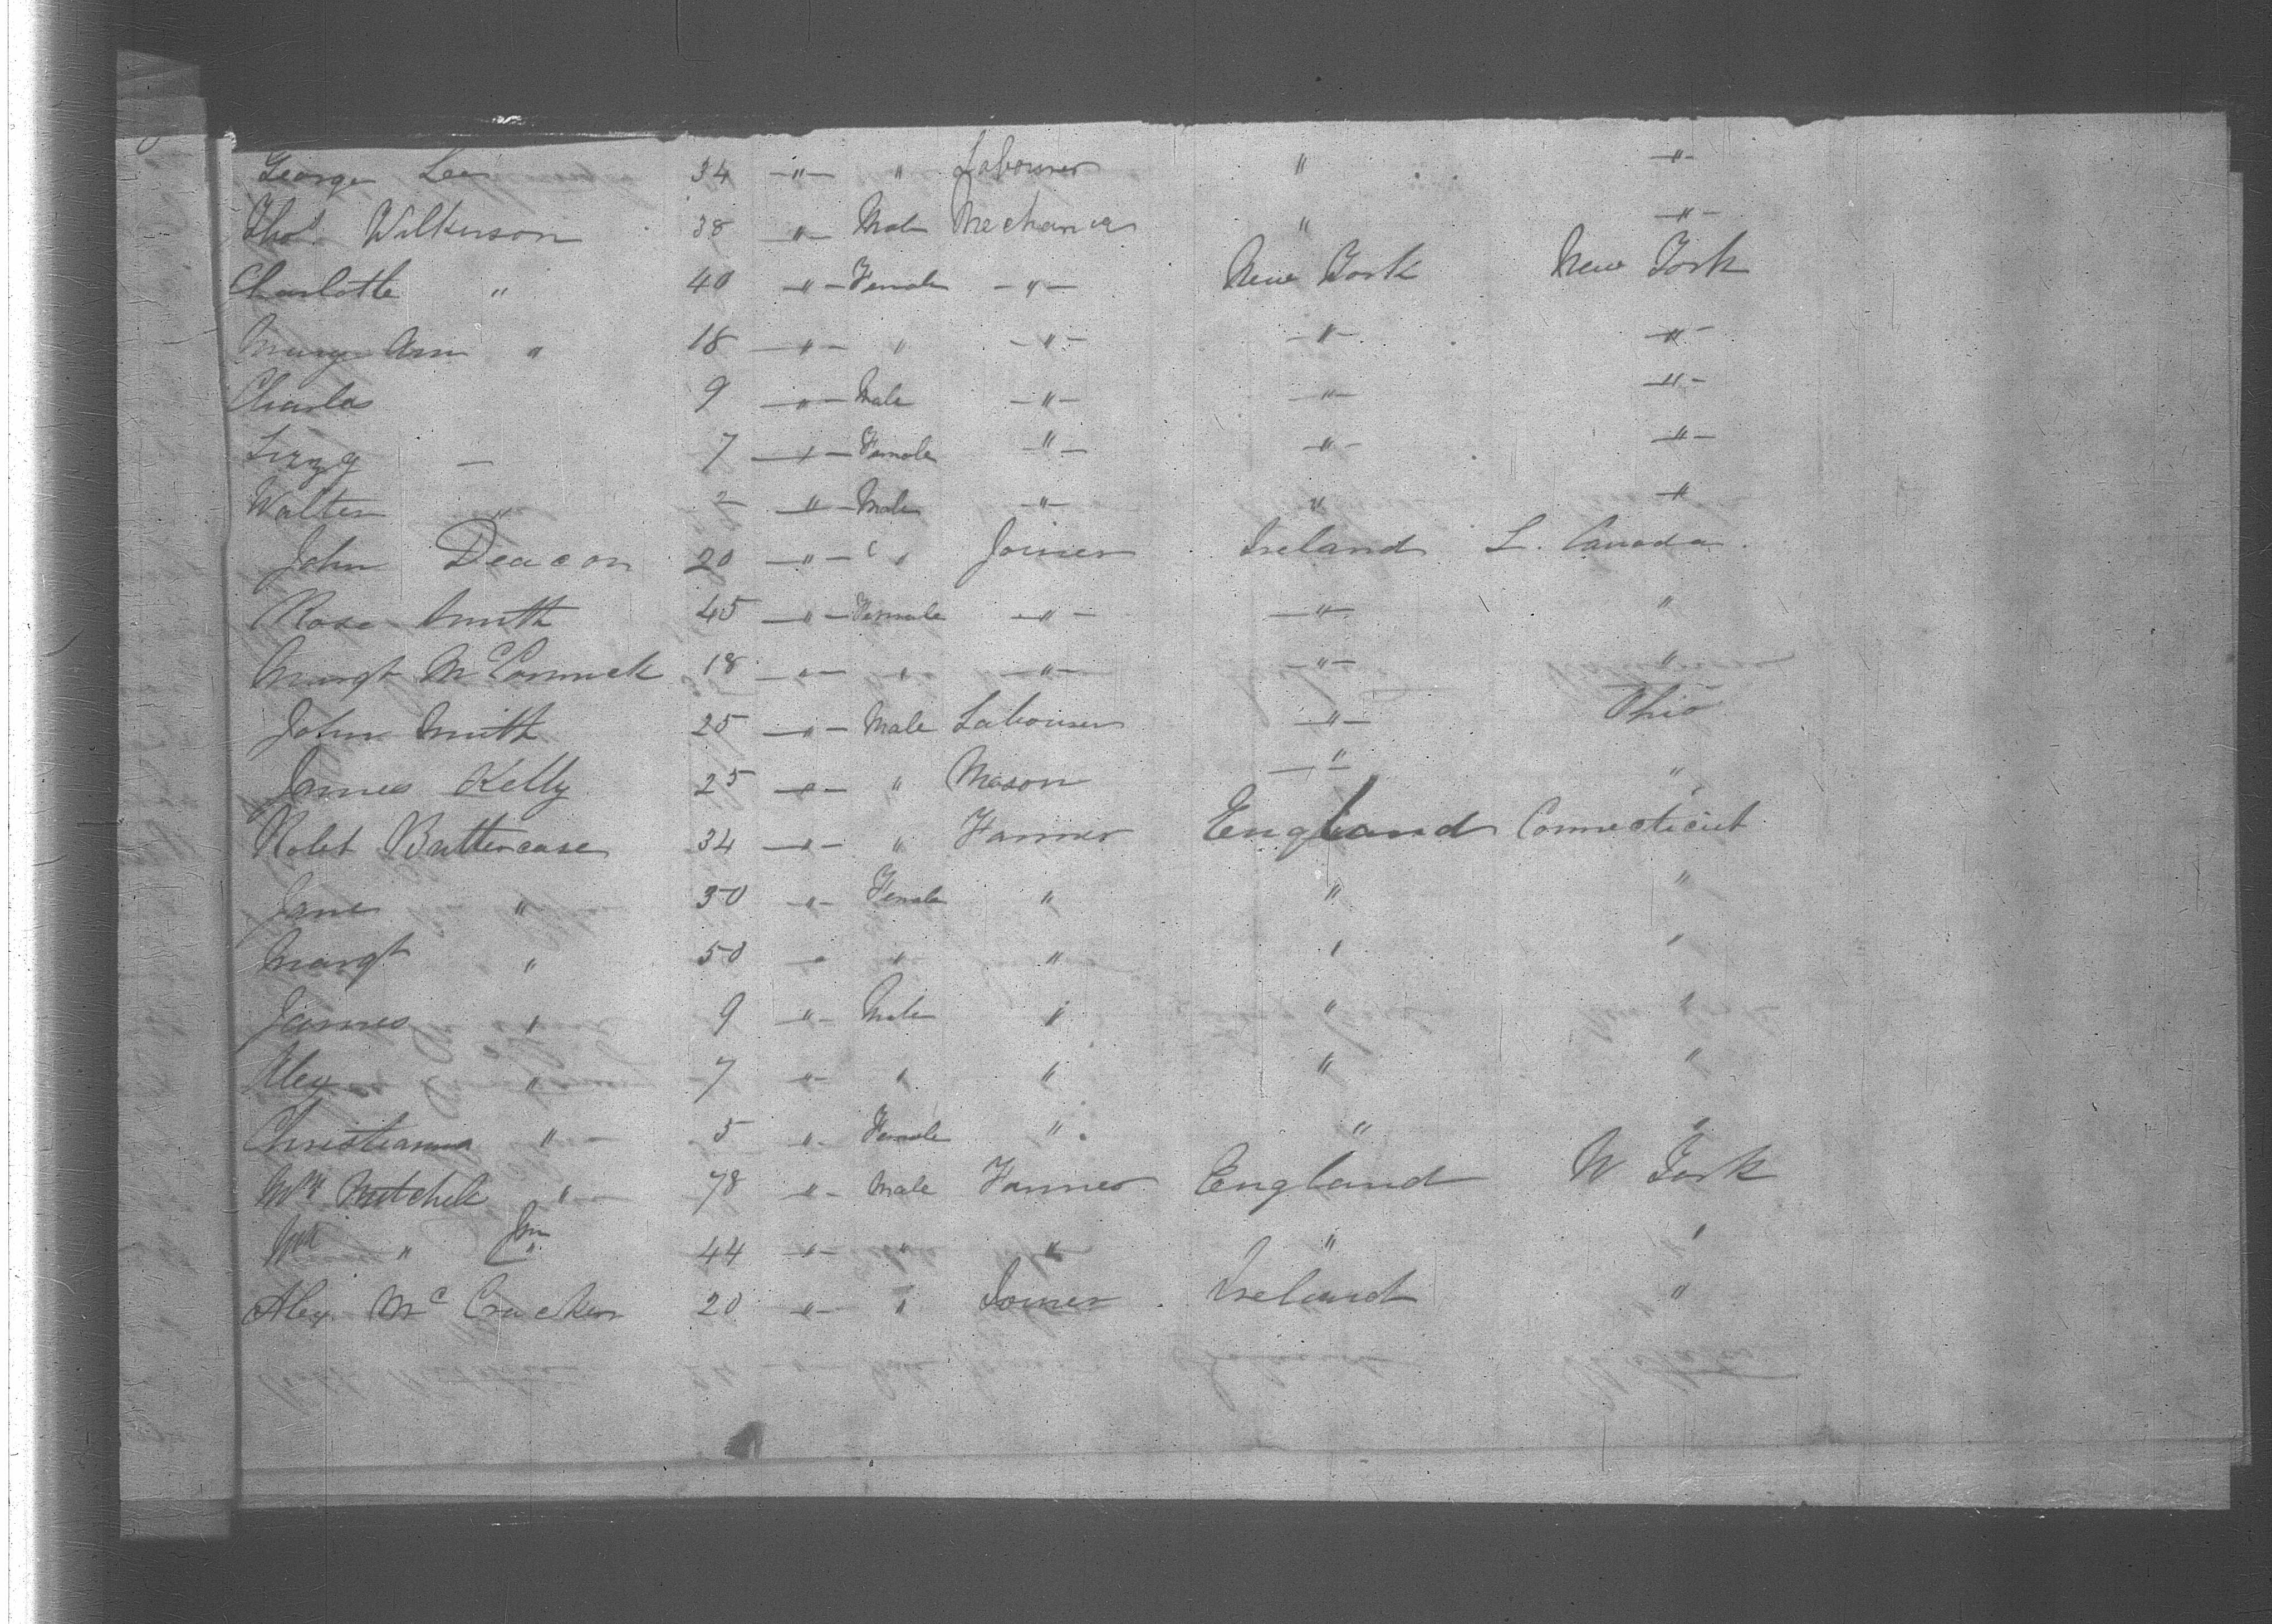 George Lee 34 —"— " Labourer " —"—
Thos. Wilkinson 38 —"— Male Mechanic " —"—
Charlotte " 40 —"— Female —"— New York New York
Mary Ann " 18 —"— " —"— —"— —"—
Charles 9 —"— Male —"— —"— —"—
Lizzy — 7 —"— Female —"— —"— —"—
Walter " 2 —"— Male —"— " —"
John Deacon 20 —"— " Joiner Ireland L. Canada
Rose Smith 45 —"— Female —"— —"— "
Margt McCormick 18 —"— " —"— —"— "
John Smith 25 —"— Male Labourer —"— Ohio
James Kelly 25 —"— " Mason —"— "
Robt Buttercase 34 —"— " Farmer England Connecticut
Jane " 30 —"— Female " " "
Margt " 50 — " " " " "
James " 9 —"— Male " " "
Alex " 7 —"— " " " "
Christianna " — 5 "— Female " " "
Wm Mitchell " — 78 "— Male Farmer England N York
Wm " Jun " 44 —"— " " " "
Alex McCracken 20 —"— " Joiner Ireland "